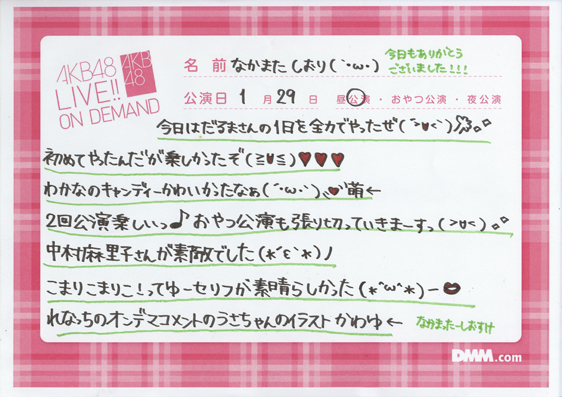 AKB48
LIVE!!
ON DEMAND
AKB
48
名 前 なかまた しおり(｀・ω・´)
今日もありがとう
ございました!!!
公演日 1 月 29 日 昼公演・おやつ公演・夜公演
今日はだるまさんの1日を全力でやったぜ
初めてやったんだが楽しかったぞ(≧∀≦)♥♥♥
わかなのキャンディーかわいかたなぁ(´・ω・`) 萌←
2回公演楽しいっ♪おやつ公演も張り切っていきまーすっ
中村麻里子さんが素敵でした(*´ε`*)ノ
こまりこまりこ!ってゆーセリフが素晴らしかった(*^ω^*)ー
れなっちのオンデマコメントのうさちゃんのイラストかわゆ←
なかまったーしおすけ
DMM.com